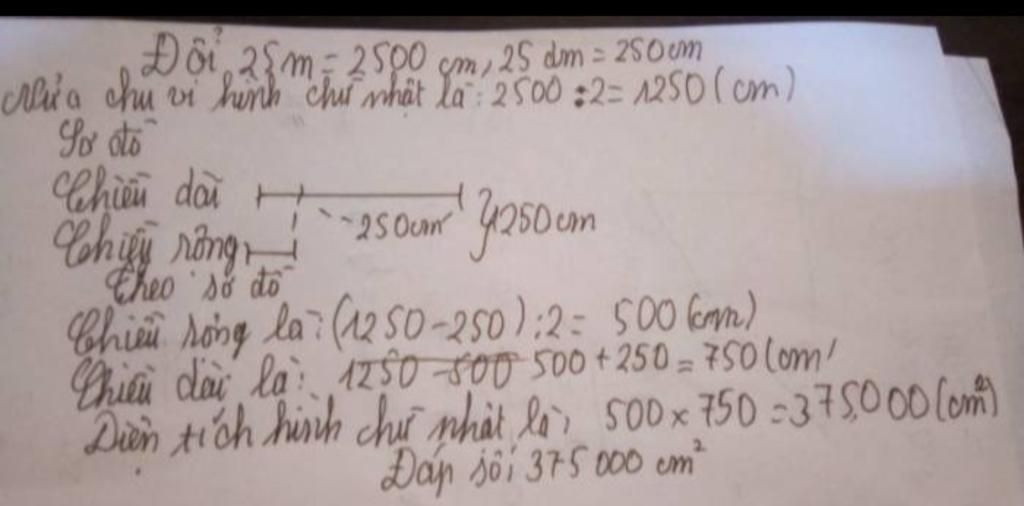 Đổi 25m = 2500 cm, 25 dm = 250cm
Nửa chu vi hình chữ nhật là: 2500 : 2 = 1250 (cm)
Sơ đồ
Chiều dài
250cm
1250cm
Chiều rộng
Theo sơ đồ
Chiều rộng là: (1250 - 250) : 2 = 500 (cm)
Chiều dài là: 1250 - 500 500 + 250 = 750 (cm)
Diện tích hình chữ nhật là: 500 x 750 = 375000 (cm²)
Đáp số: 375 000 cm²